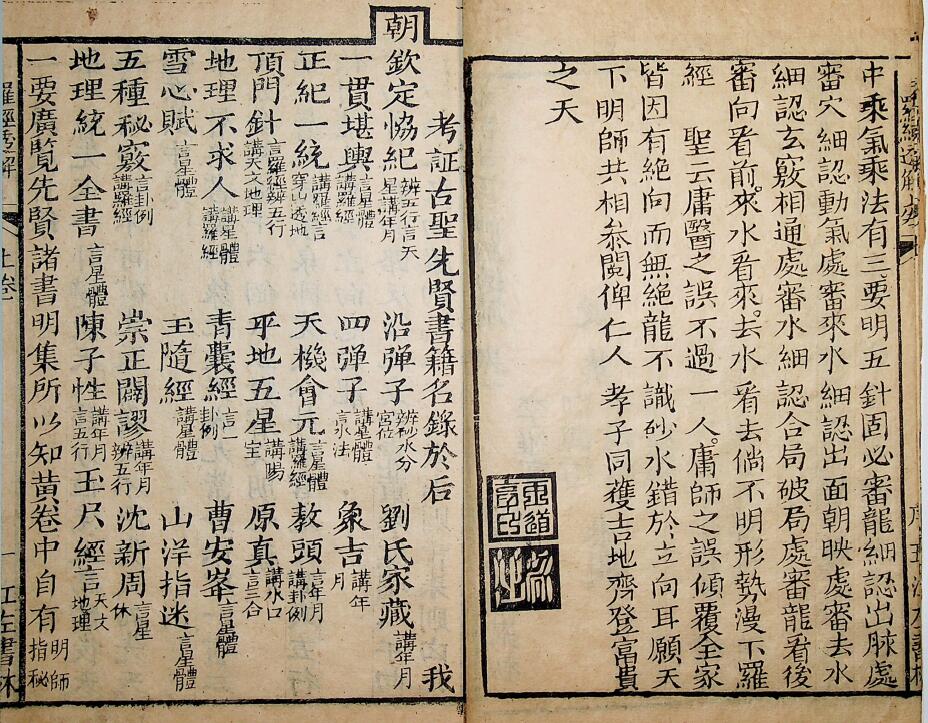 中乘氣乘法有三要明五針固必審龍細認出脉處
審穴細認動氣處審來水細認出面朝映處審去水
細認玄竅相通處審水細認合局破局處審龍看後
審向看前來水看來去水看去倘不明形勢漫下羅
經 聖云庸醫之誤不過一人庸師之誤傾覆全家
皆因有絕向而無絕龍不識砂水錯於立向耳願天
下明師共相叅閱俾仁人孝子同獲吉地齊登富貴
之天
考証古聖先賢書籍名錄於后 我
朝欽定恊紀辨五行言天星講年月 沿弹子辨砂水分宮位 劉氏家藏講年月
一貫堪輿言星體講羅經 四弹子講星體言水法 象吉講年月
正紀一統講羅經言穿山透地 天機會元言星體講羅經 教頭言年月講卦例
頂門針言羅經辨五行講天文地理 平地五星講陽宝 原真講水口言三合
地理不求人講星體講羅經 青囊經言一卦例 曹安峯言星體
雪心賦言星體 玉隨經講星體 山洋指迷言星體
五種秘竅言卦例講羅經 崇正闢謬講年月辨五行 沈新周言星休
地理統一全書言星體 陳子性講年月言五行 玉尺經言天文地理
一要廣覧先賢諸書明集所以知黃卷中自有明師指秘
羅經秀解
上卷